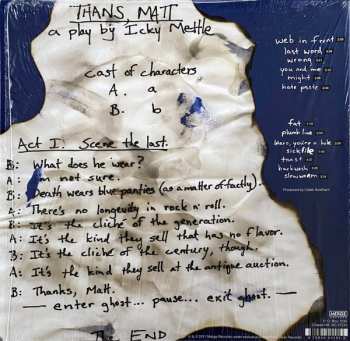 THANS, MATT
a play by Icky Mettle
cast of characters
A. a
B. b
Act I: Scene the last.
B: What does he wear?
A: I'm not sure.
B: Death wears blue panties (as a matter of factly).
A: There's no longevity in rock n' roll.
B: It's the cliché of the generation.
A: It's the kind they sell that has no flavor.
B: It's the cliché of the century, though.
A: It's the kind they sell at the antique auction.
B: Thanks, Matt.
— enter ghost... pause... exit ghost. —
THE END
web in front
last word
wrong
you and me
might
hate paste
fat
plumb line
learo, you're a hole
sickfile
toast
backwash
slow worm
MERGE